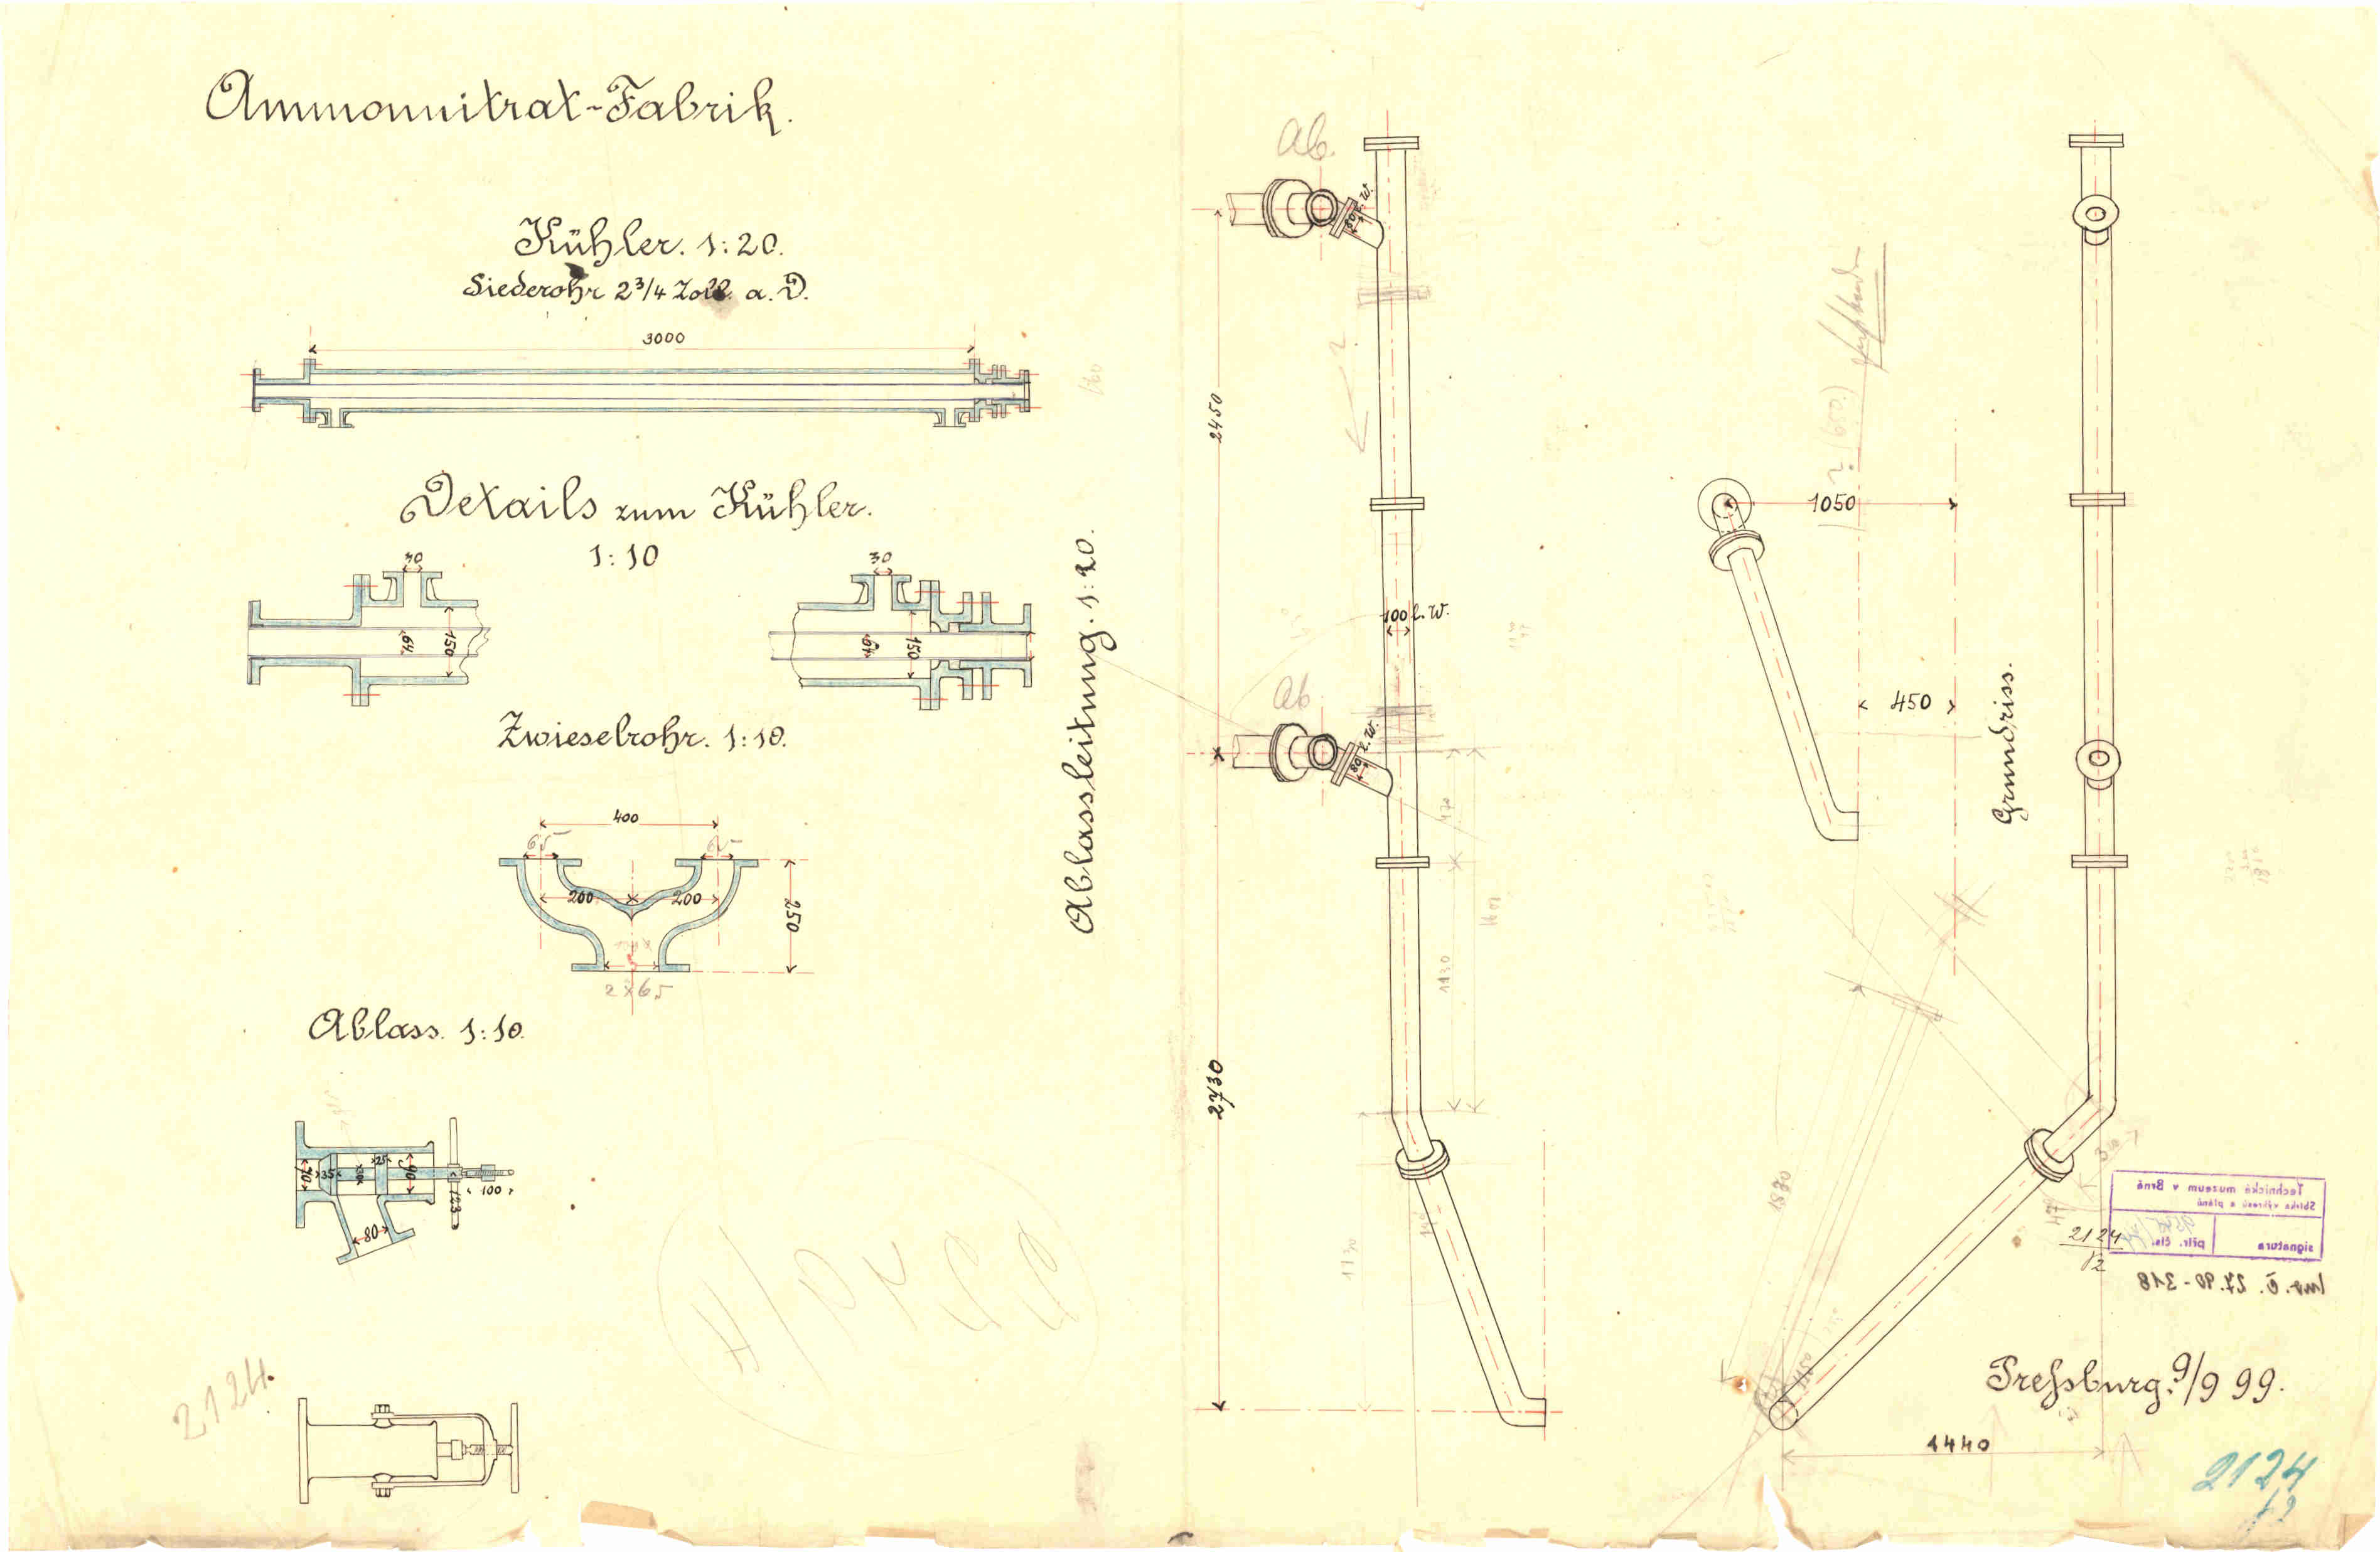 Ammonnitrat-Fabrik.
Kühler. 1:20.
Siederohr 2 3/4 Zoll a. D.
3000
Details zum Kühler.
1:10
30
64
150
30
64
150
Zwieselrohr. 1:10.
400
65
65
200
200
250
2x65
Ablass. 1:10.
70
35
25
90
123
100
80
2124.
Ablassleitung. 1:20.
Ab.
80 l.W.
2450
100 l.W.
Ab
80 l.W.
170
1130
1601
2730
1130
(650)
1050
450
Grundriss.
1870
1440
Technické muzeum v Brně
Sbírka výkresů a plánů
signatura
přír. čís.
2124
12
Inv. č. 27.90-318
Preſsburg. 9/9 99.
2124
12